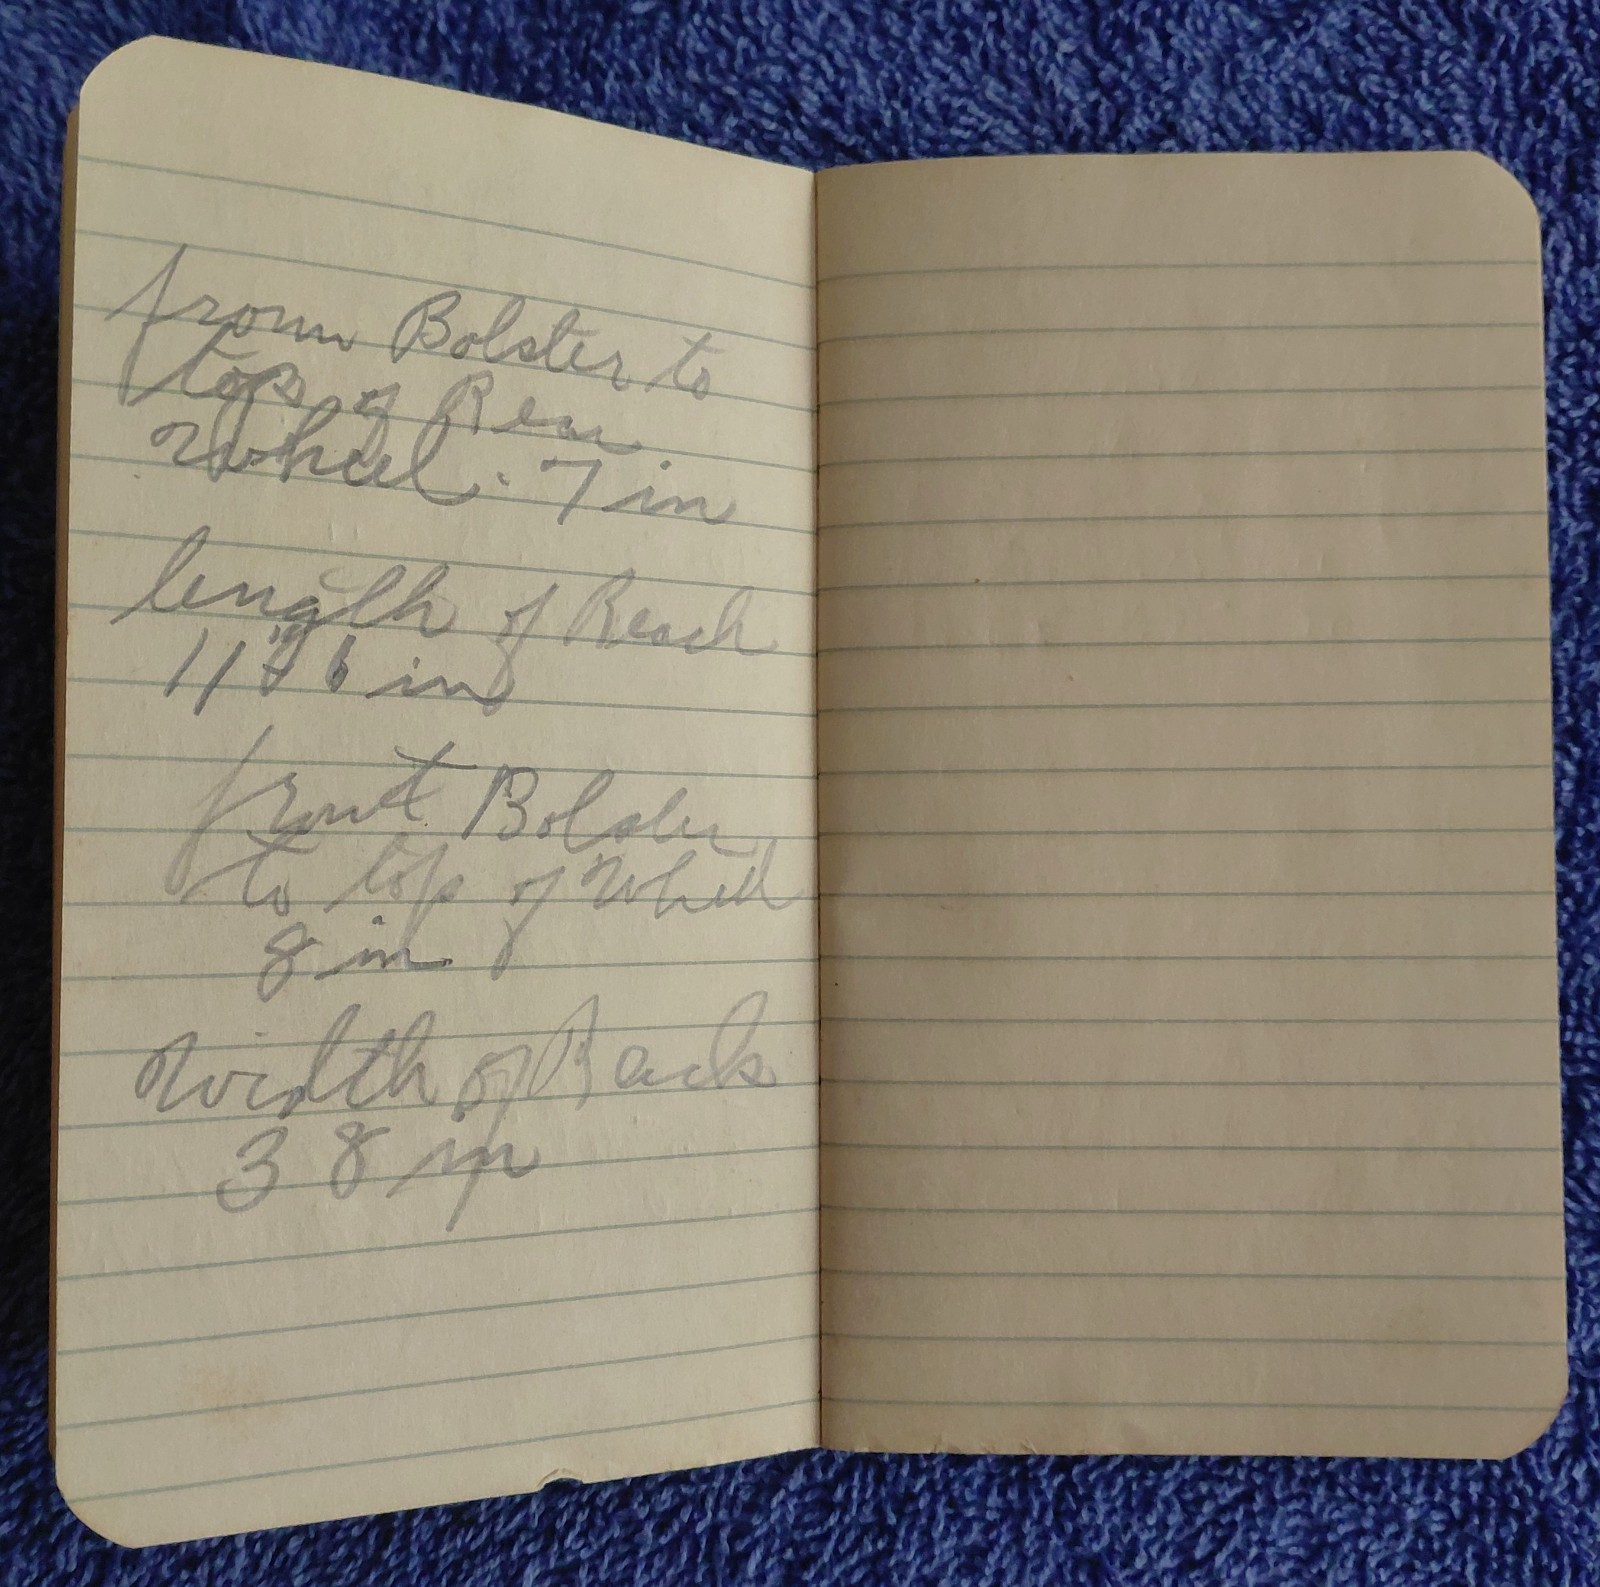 from Bolster to
top of Rear
Wheel. 7 in
length of Reach
11 6 in
front Bolster
to top of Wheel
8 in
Width of Back
38 in